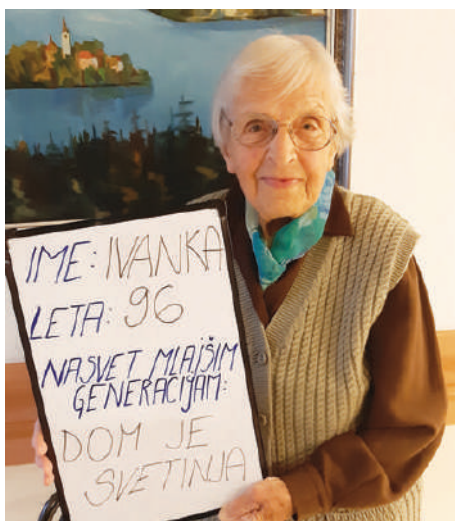 IME: IVANKA
LETA: 96
NASVET MLAJŠIM
GENERACIJAM:
DOM JE
SVETINJA